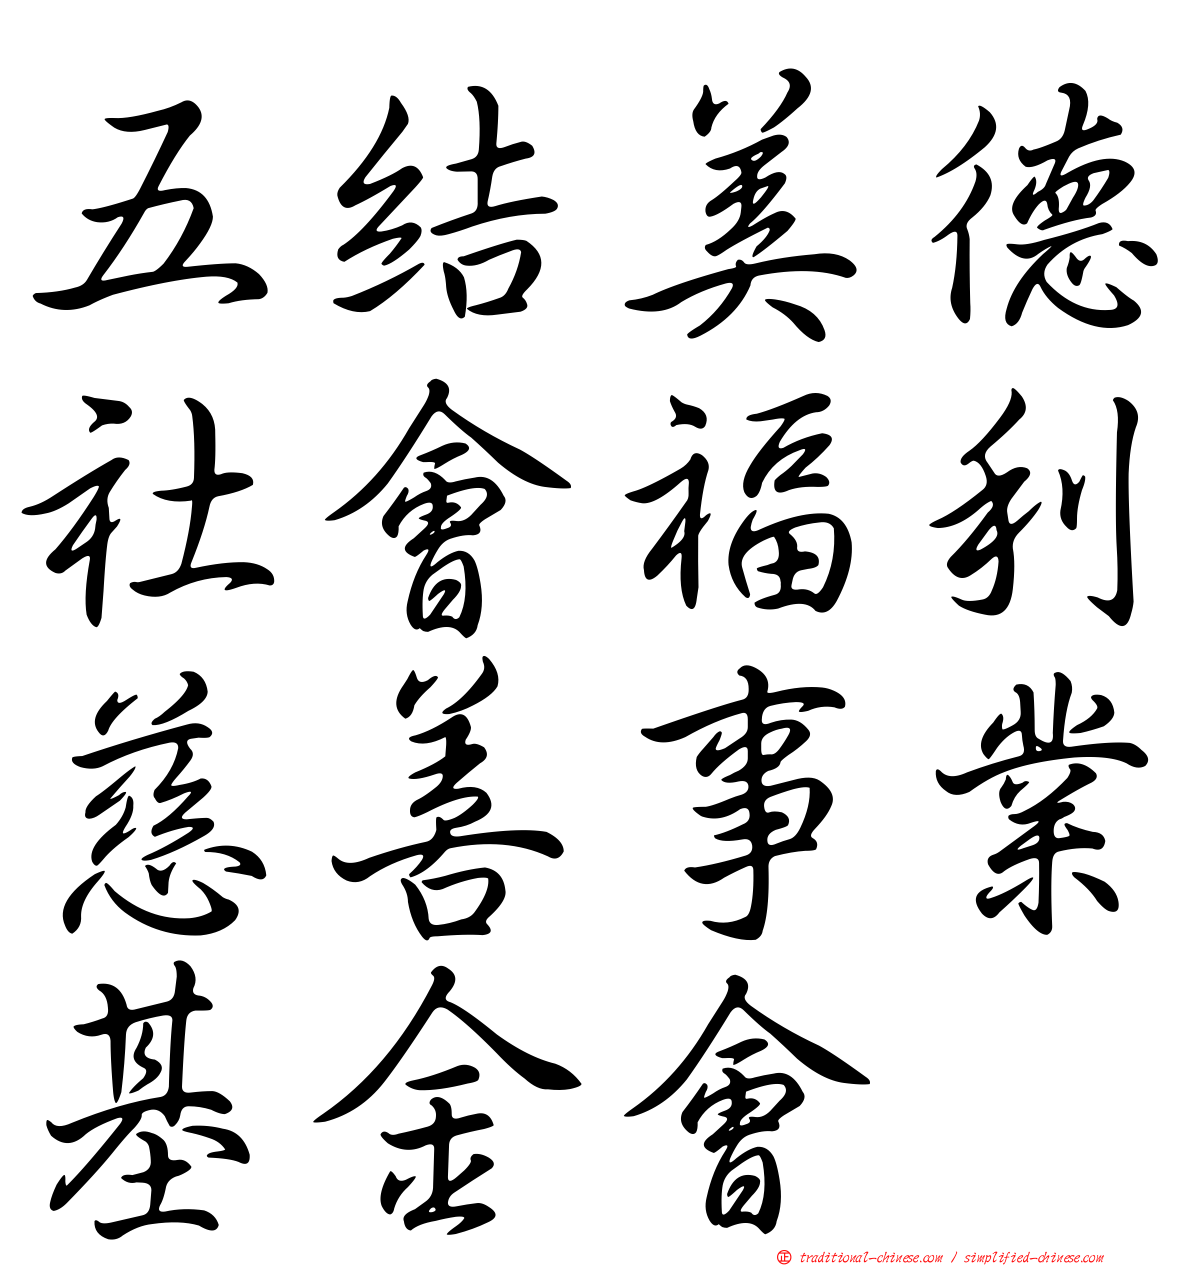 五結美德
社會福利
慈善事業
基金會
正 traditional-chinese.com / simplified-chinese.com